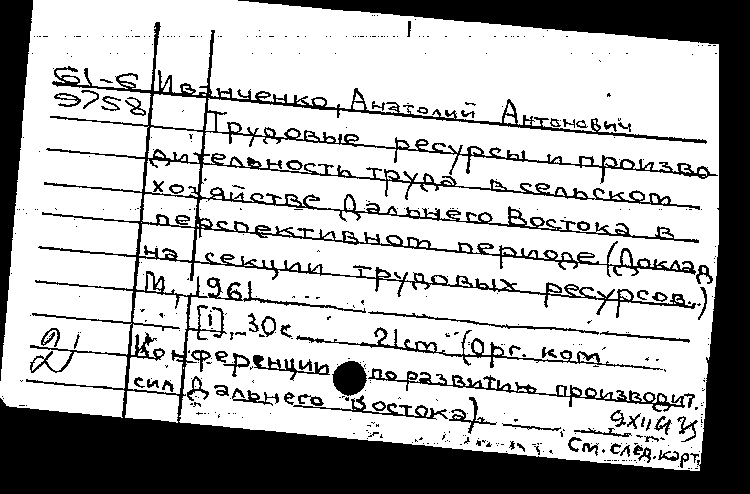 61-6 Иванченко, Анатолий Антонович
9758
Трудовые ресурсы и произво
дительность труда в сельском
хозяйстве Дальнего Востока в
перспективном периоде (Доклад
на секции трудовых ресурсов.)
М., 1961
[1], 30с. 21см. (Орг. ком.
Конференции по развитию производит.
сил Дальнего Востока).
См. след. карт.